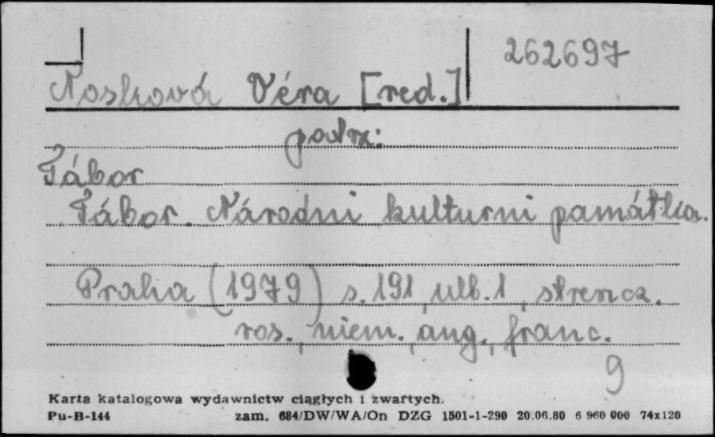 262697
Nosková Véra [red.]
patrz:
Tábor
Tábor. Národni kulturni památka.
Praha (1979) s. 191, ulb. 1, streszcz.
ros., niem., ang., franc.
9
Karta katalogowa wydawnictw ciągłych i zwartych.
Pu-B-144 zam. 684/DW/WA/On DZG 1501-1-290 20.06.80 6 960 000 74x120